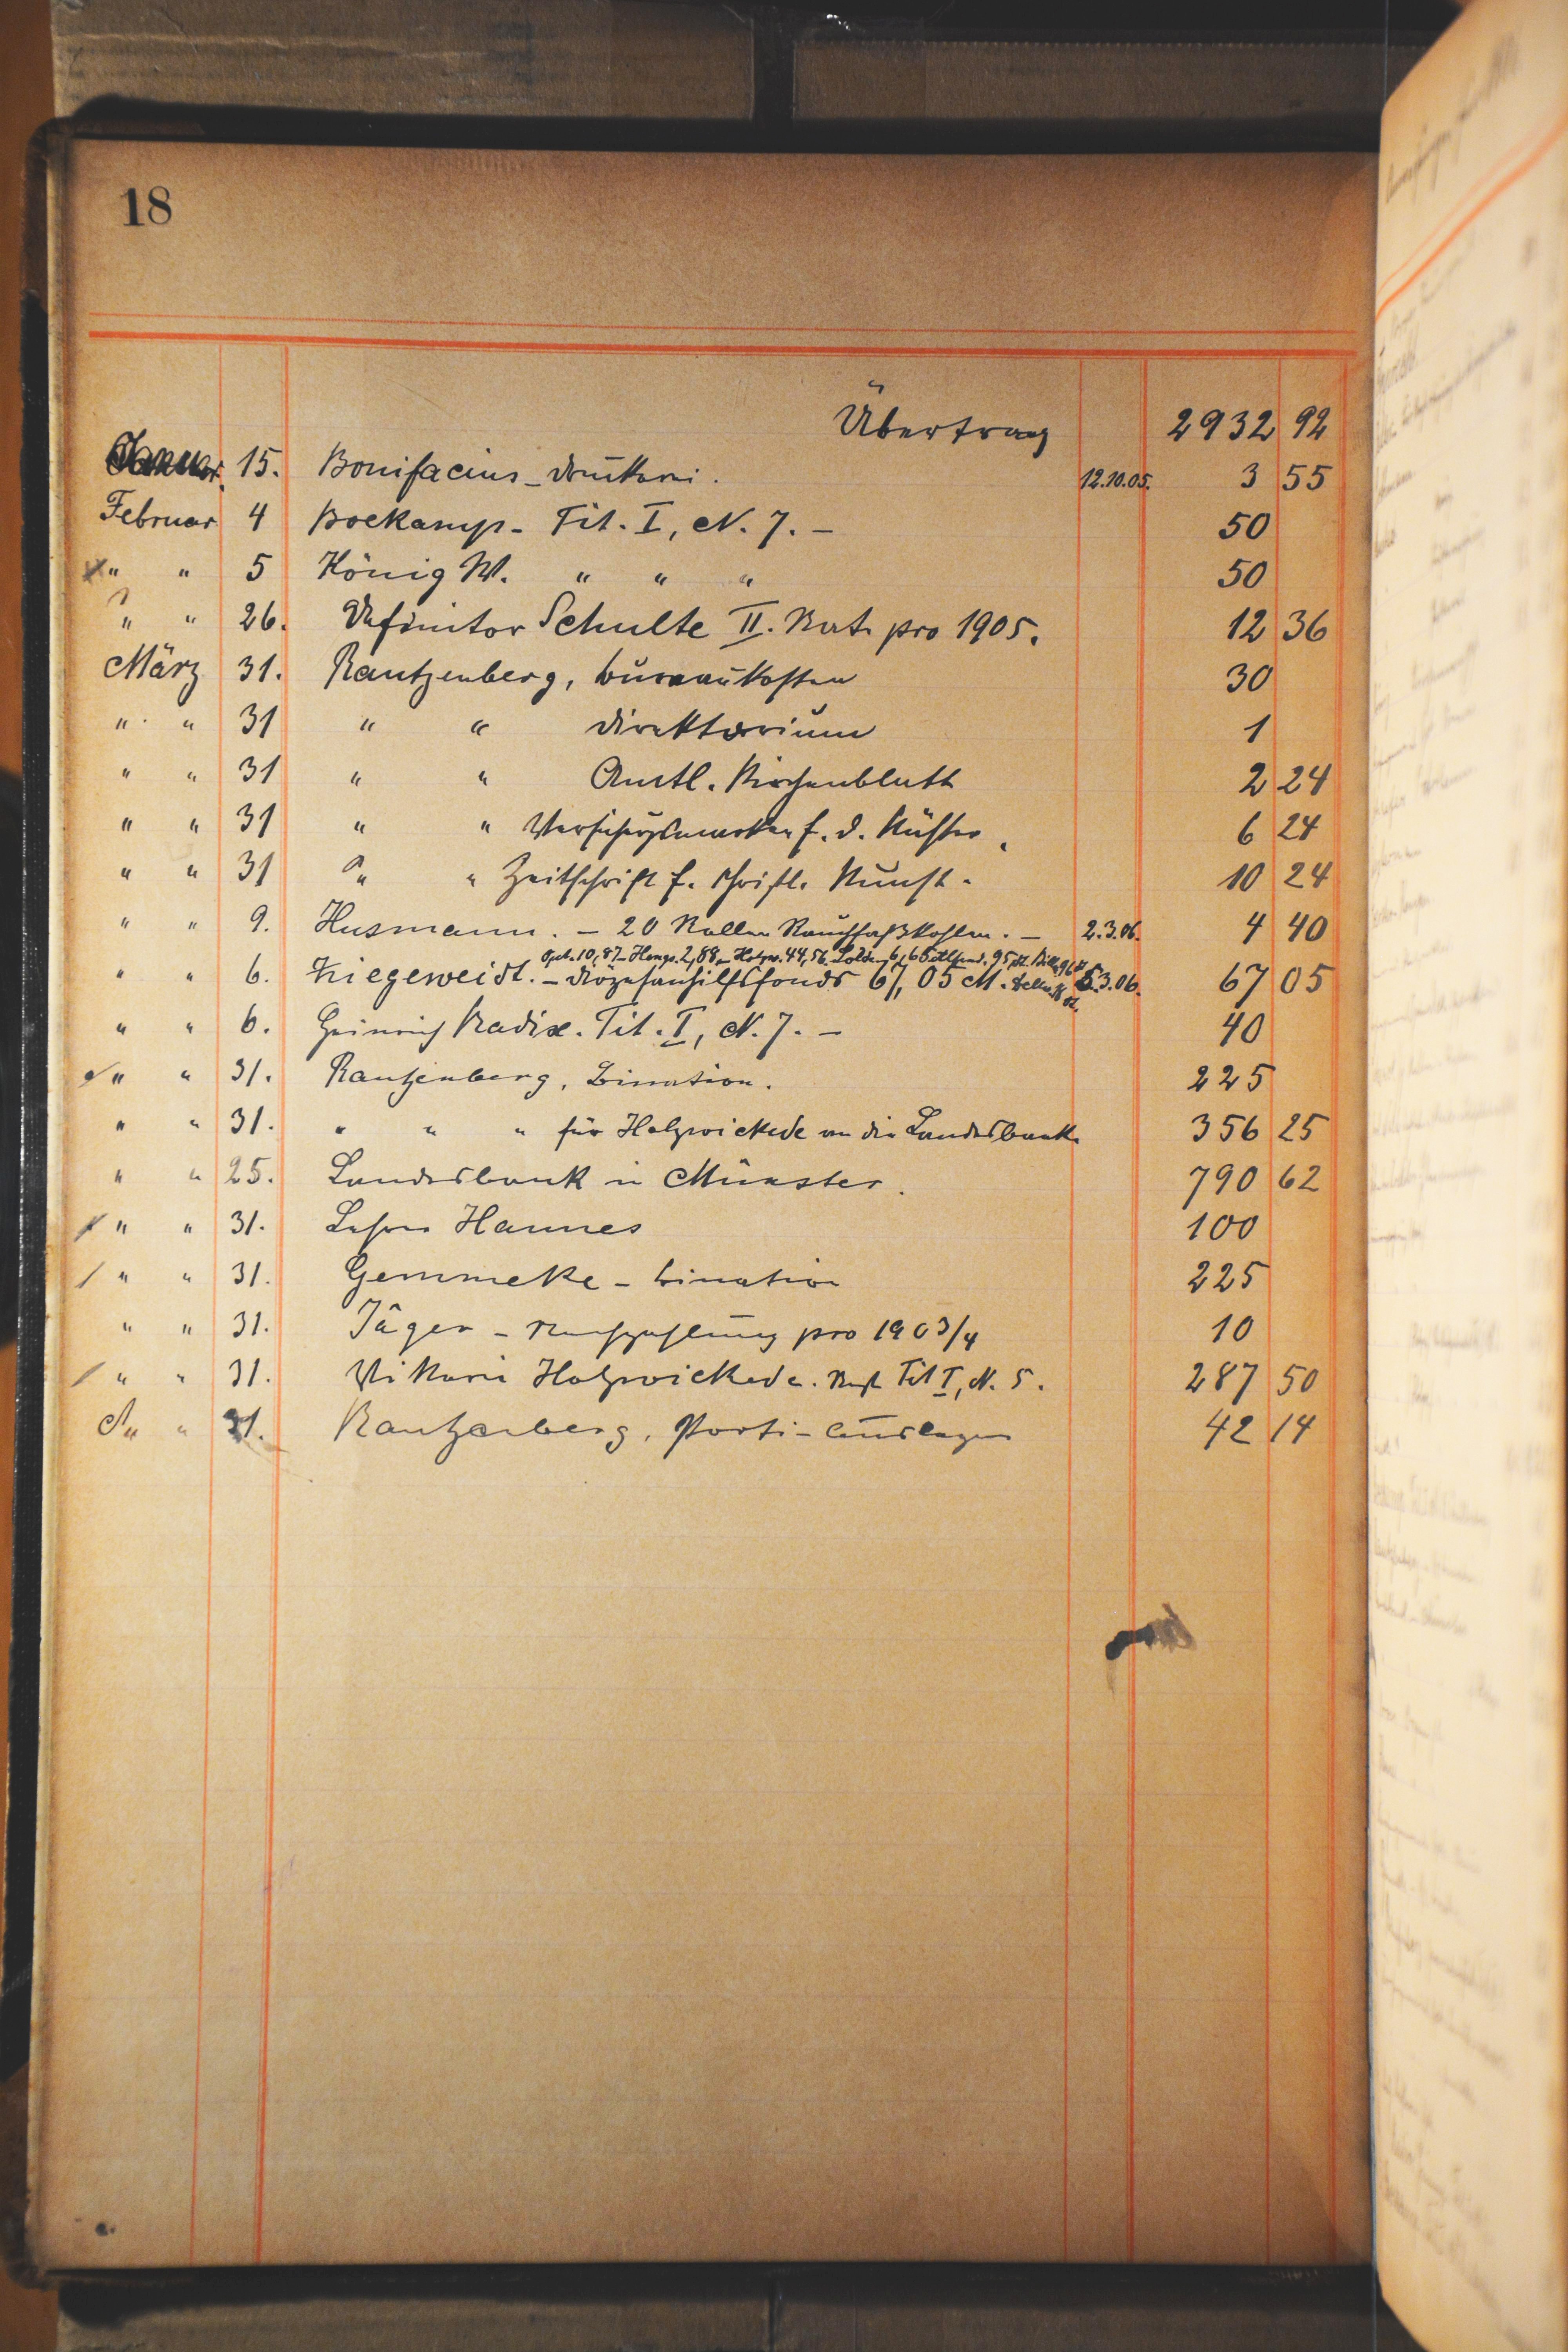 18
Übertrag 2932 92
Januar. 15. Bonifacius-Druckerei. 12.10.05. 3 55
Februar 4 Boekamp - Tit. I, N. 7. - 50
" " 5 König W. " " " 50
" " 26. Definitor Schulte II. Rate pro 1905. 12 36
März 31. Rantzenberg, Bureaukosten 30
" " 31 " " Direktorium 1
" " 31 " " Amtl. Kirchenblatt 2 24
" " 31 " " f. d. Küster. 6 24
" " 31 " " Zeitschrift f. christl. Kunst. 10 24
" " 9. Husmann. - 20 Rollen Rauchfaßkohlen. - 2.3.06. 4 40
10,87 - Henge. 2,88 - Holzw. 44,56 6,65 95
" " 6. Kriegeweidt. - Diözesanhilfsfonds 67,05 M. 5.3.06. 67 05
" " 6. Heinrich Radix. Tit. I, N. 7. - 40
" " 31. Rantzenberg, Bination. 225
" " 31. " " " für Holzwickede an die Landesbank. 356 25
" " 25. Landesbank in Münster. 790 62
" " 31. Lehrer Hannes 100
" " 31. Gemmeke - Bination 225
" " 31. Jäger - Nachzahlung pro 1903/4 10
" " 31. Vikarie Holzwickede. Tit I, N. 5. 287 50
" " 31. Rantzenberg, Porti-Auslagen 42 14